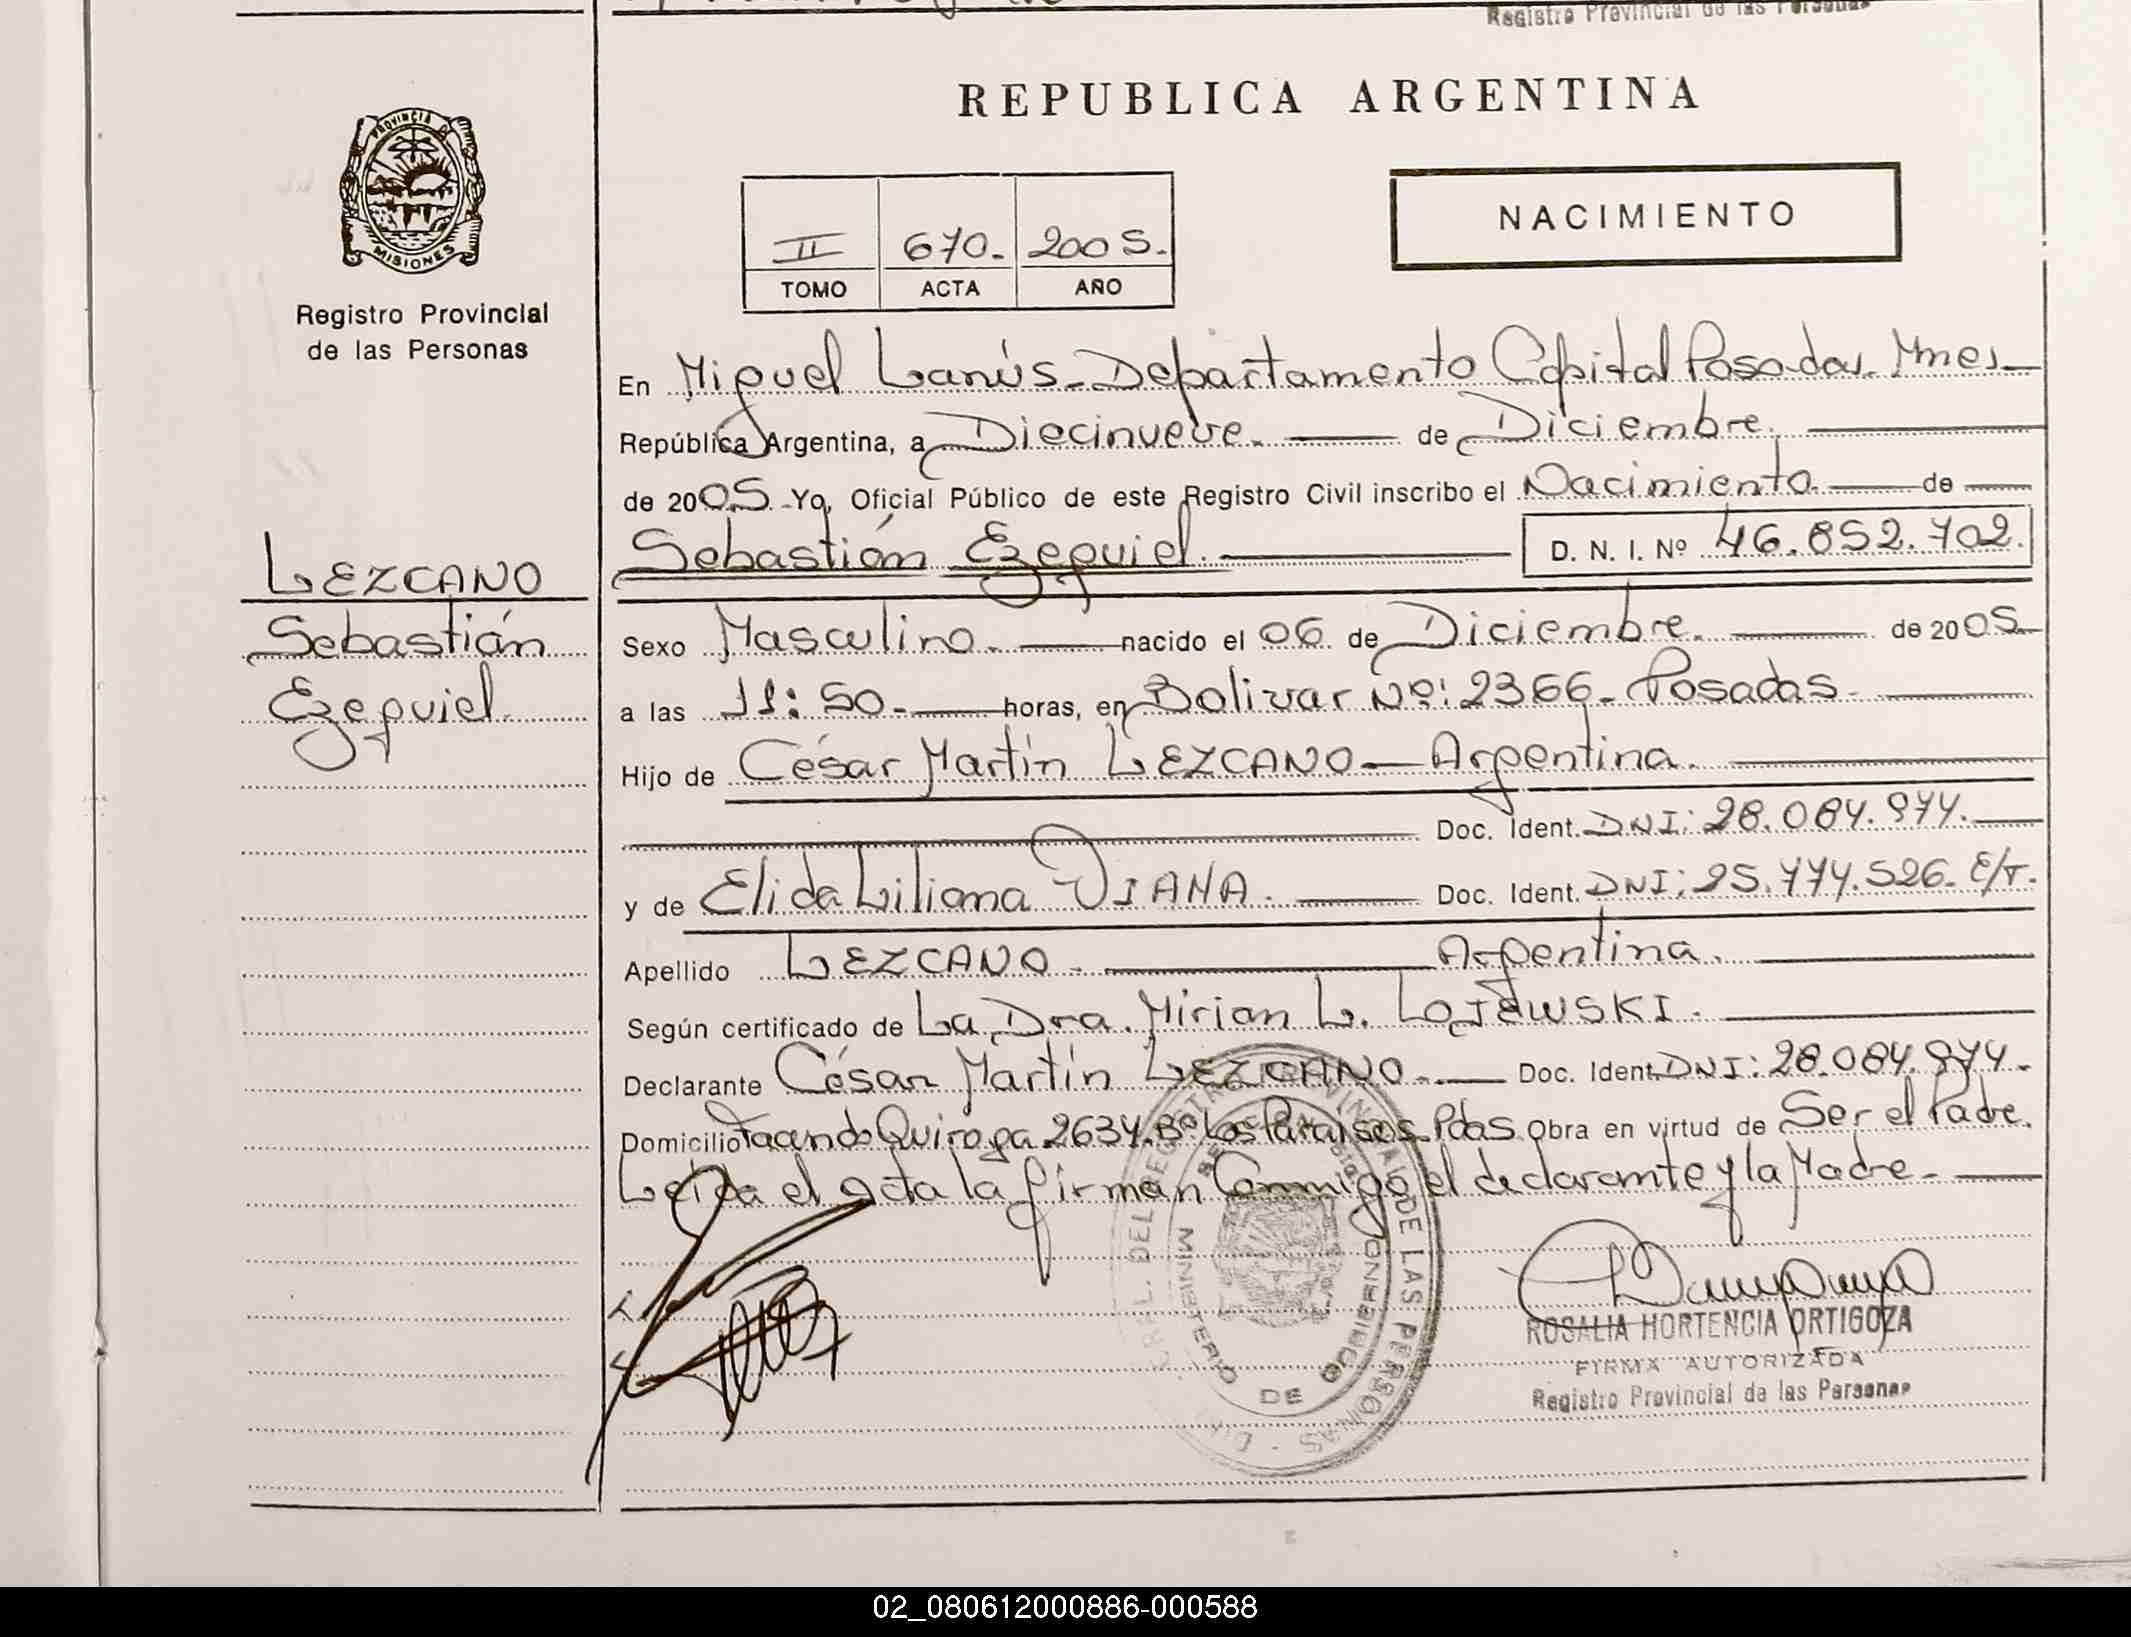 Registro Provincial de las Personas
REPUBLICA ARGENTINA
PROVINCIA D
MISIONES
Registro Provincial
de las Personas
II 670. 2005.
TOMO ACTA AÑO
NACIMIENTO
En Miguel Lanús. Departamento Capital Posadas. Mnes.
República Argentina, a Diecinueve. de Diciembre.
de 2005. Yo, Oficial Público de este Registro Civil inscribo el Nacimiento de
Sebastián Ezequiel. D. N. I. Nº 46.852.702.
LEZCANO
Sebastián
Ezequiel.
Sexo Masculino. nacido el 06 de Diciembre. de 2005
a las 11:50. horas, en Bolivar Nº: 2366. Posadas.
Hijo de César Martín LEZCANO — Argentina.
Doc. Ident. DNI: 28.084.974.
y de Elida Liliana VIANA. Doc. Ident. DNI: 25.774.526. E/T.
Apellido LEZCANO. Argentina.
Según certificado de La Dra. Mirian L. LOJEWSKI.
Declarante César Martín LEZCANO. Doc. Ident. DNI: 28.084.974.
Domicilio Facundo Quiroga 2634. Bº Los Paraísos. Pdas. Obra en virtud de Ser el Padre.
Leída el acta la firman Conmigo el declarante y la Madre.
DEL REGISTRO PROVINCIAL DE LAS PERSONAS
MINISTERIO DE GOBIERNO
ROSALIA HORTENCIA ORTIGOZA
FIRMA AUTORIZADA
Registro Provincial de las Personas
02_080612000886-000588